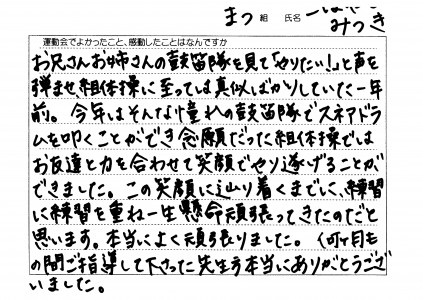 まつ組 氏名
みつき
運動会でよかったこと、感動したことはなんですか
お兄さんお姉さんの鼓笛隊を見て「やりたい!」と声を
弾ませ、組体操に至っては真似ばかりしていた一年
前。今年はそんな憧れの鼓笛隊でスネアドラ
ムを叩くことができ念願だった組体操では
お友達と力を合わせて笑顔でやり遂げることが
できました。この笑顔に辿り着くまでに、練習
に練習を重ね一生懸命頑張ってきたのだと
思います。本当によく頑張りました。何ヶ月も
の間ご指導して下さった先生方本当にありがとうござ
いました。